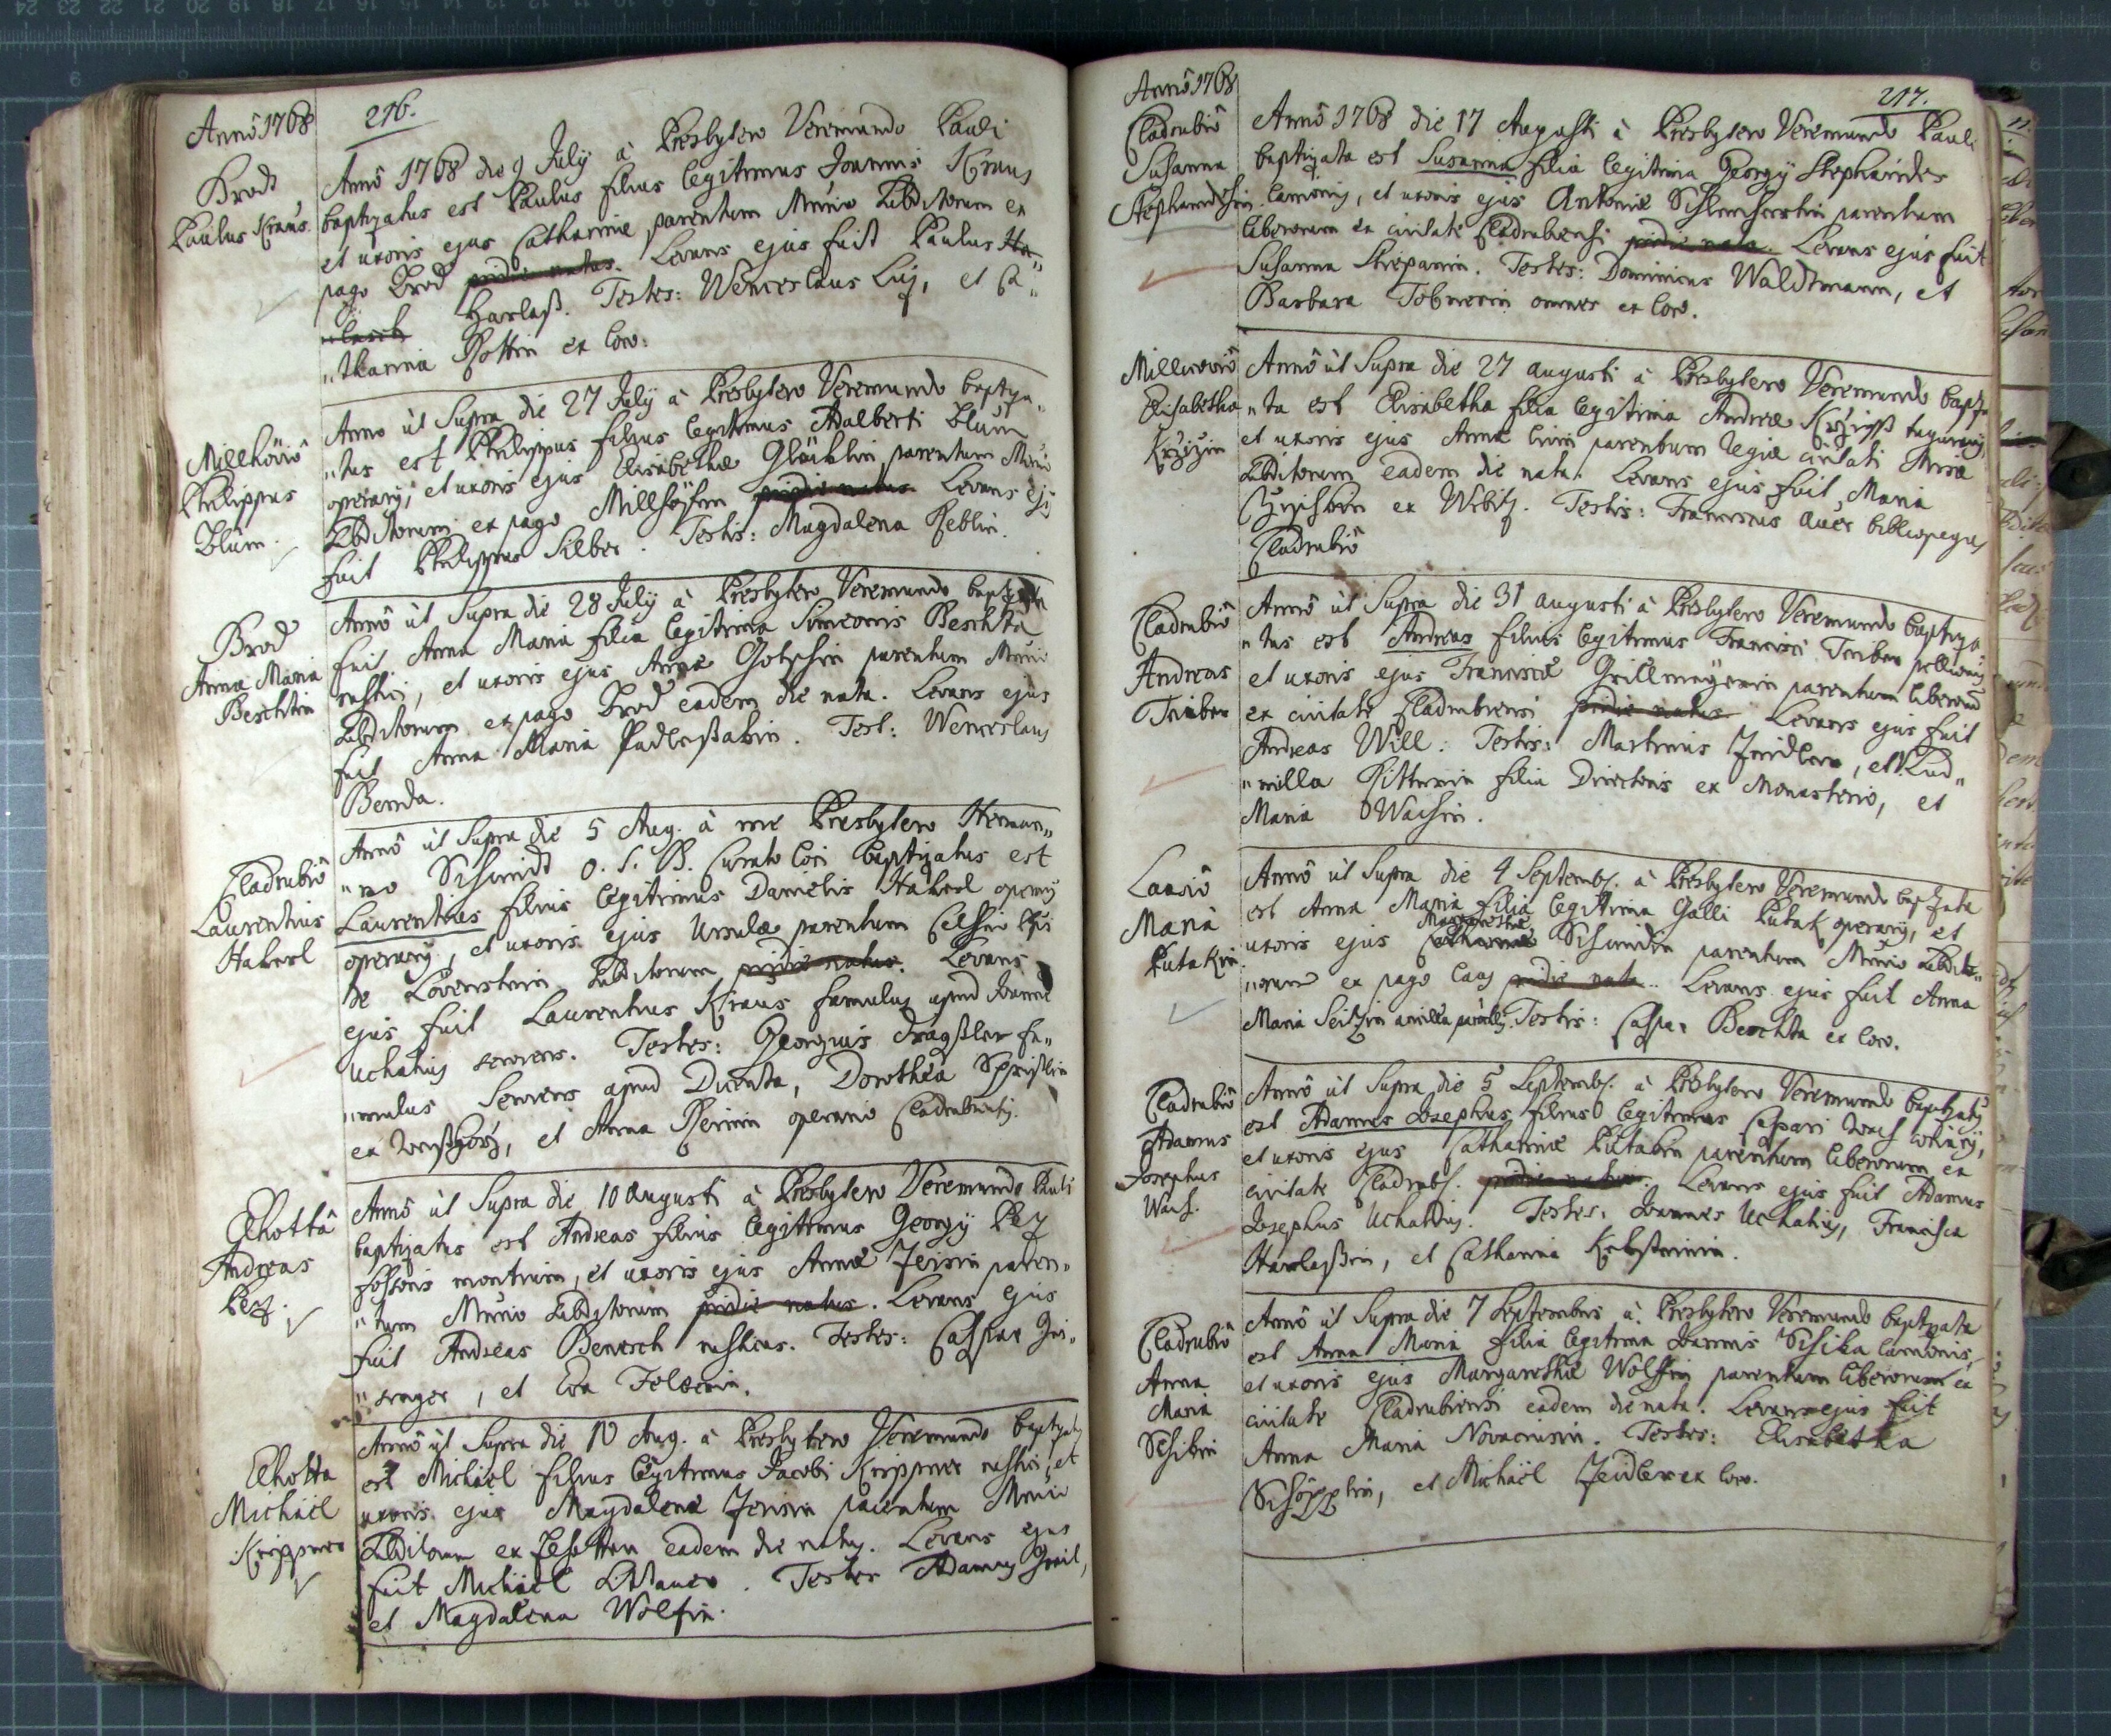 Annô 1768
216.
Brod
Paulus Kraus.
Annô 1768 die 9 July à Presbytero Veremundo Pauli
baptizatus est Paulus filius legitimus Joannis Kraus
et uxoris ejus Catharinæ parentum Mrio Subditorum ex
pago Brod pridie natus. Levans ejus fuit Paulus Ha„
Harlaß. Testes: Wenceslaus Luj, et Ca„
„tharina Rottin ex loco:
Millhöviô
Philippus
Blum.
Anno ùt Supra die 27 July à Presbytero Veremundo baptiza„
„tus est Philippus filius legitimus Adalberti Blum
operary, et uxoris ejus Elisabethæ Glöcklin parentum Mrio
Subditorum ex pago Millhöffen pridie natus. Levans ejus
fuit Philippus Silber. Testis: Magdalena Reblin.
Brod
Anna Maria
Beschtin
Annô ùt Supra die 28 July à Presbytero Veremundo baptizata
fuit Anna Maria filia legitima Simeonis Beschta
rustici, et uxoris ejus Annæ Gotschin parentum Mrio
Subditorum ex pago Brod eadem die nata. Levans ejus
fuit Anna Maria Padlesakin. Test: Wenceslaus
Benda.
Cladrubiô
Laurentius
Haberl
Annô ùt Supra die 5 Aug. à me Presbytero Herman„
„no Schmidt O. S. B. Curato loci baptizatus est
Laurentius filius legitimus Danielis Haberl
operary, et uxoris ejus Ursulæ parentum Celsiss
de Lövenstein Subditorum pridie natus. Levans
ejus fuit Laurentius Kraus famulus apud Joannem
Uchatius serviens. Testes: Georgius Fragßler fa„
„mulus Serviens apud Ducata, Dorothea
ex, et Anna Reinin operaria Cladrubiensis.
Elhottâ
Andreas
Pez.
Annô ùt Supra die 10 Augusti à Presbytero Veremundo Pauli
baptizatus est Andreas filius legitimus Georgy Pez
fossoris montium, et uxoris ejus Annæ Zeisin paren„
„tum Mrio Subditorum pridie natus. Levans ejus
fuit Andreas Benesch rusticus. Testes: Caspar
, et Eva Felberin.
Elhotta
Michäel
Krippner
Annô ùt Supra die 10 Aug. à Presbytero Veremundo baptizatus
est Michäel filius legitimus Jacobi Krippner rustici, et
uxoris ejus Magdalenæ Zeisin parentum Mrio
Subditorum ex Elhotten eadem die natus. Levans ejus
fuit Michäel Littauer. Testes Adamus Greil,
et Magdalena Wolfin.
Annô 1768
217.
Cladrubiô
Susanna
Annô 1768 die 17 Augusti à Presbytero Veremundo Pauli
baptizata est Susanna filia legitima Georgy Stephanides
Lanionis, et uxoris ejus Antoniæ parentum
liberorum ex civitate Cladrubiensi pridie nata. Levans ejus fuit
Susanna Stiepanin. Testes: Dominicus Waldtmann, et
Barbara Tobnerin omnes ex loco.
Elisabetha
Annô ùt Supra die 27 augusti à Presbytero Veremundo baptiza
„ta est Elisabetha filia legitima Andreæ
et uxoris ejus Annæ parentum Regiæ civitati Misæ
Subditorum eadem die nata. Levans ejus fuit Maria
ex Wrbitz. Testis: Franciscus Auer bibliopegus
Cladrubiô
Cladrubiô
Andreas
Treiber
Annô ùt Supra die 31 augusti à Presbytero Veremundo baptiza
„tus est Andreas filius legitimus Francisci Treiber pellionis
et uxoris ejus Franciscæ Grillmayerin parentum liberorum
ex civitate Cladrubiensi pridie natus. Levans ejus fuit
Andreas Will. Testes: Martinus Zeidler, et Lud„
„milla Rittherin filia Directoris ex Monasterio, et
Maria Wachin.
Lauziô
Maria
Putakin
Annô ùt Supra die 4 Septembs. à Presbytero Veremundo baptizata
est Anna Maria filia legitima Galli Putak operary, et
Margarethæ
uxoris ejus Catharinæ Schmidin parentum Mrio Subdito„
„rum ex pago Lauz pridie nata. Levans ejus fuit Anna
Maria Seitzin. Testis: Caspar Beschta ex loco.
Cladrubiô
Adamus
Josephus
Wach.
Annô ùt Supra die 5 Septembs. à Presbytero Veremundo baptizatus
est Adamus Josephus filius legitimus Caspari Wach,
et uxoris ejus Catharinæ Putakin parentum liberorum ex
civitate Cladrubs. pridie natus. Levans ejus fuit Adamus
Josephus Uchatius. Testes: Joannes Uchatius, Francisca
Harlaßin, et Catharina
Cladrubiô
Anna
Maria
Schikin
Annô ùt Supra die 7 Septembris à Presbytero Veremundo baptizata
est Anna Maria filia legitima Joannis Schika Lanionis,
et uxoris ejus Margarethæ Wolffin parentum liberorum ex
civitate Cladrubiensi eadem die nata. Levans ejus fuit
Anna Maria Novacsin. Testes: Elisabetha
Schöpplin, et Michäel Zeidler ex loco.